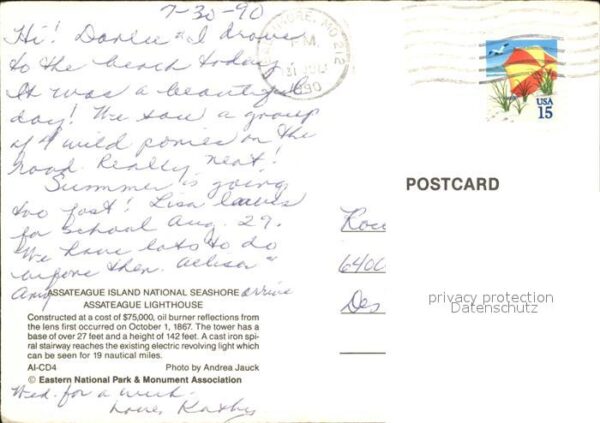 7-30-90
Hi! Darlee & I drove
to the beach today
It was a beautiful
day! We saw a group
of 4 wild ponies on the
road. Really neat!
Summer is going
too fast! Lisa leaves
for school Aug. 29.
We have lots to do
before then. Allison &
Amy arrive
ASSATEAGUE ISLAND NATIONAL SEASHORE
ASSATEAGUE LIGHTHOUSE
Constructed at a cost of $75,000, oil burner reflections from
the lens first occurred on October 1, 1867. The tower has a
base of over 27 feet and a height of 142 feet. A cast iron spi-
ral stairway reaches the existing electric revolving light which
can be seen for 19 nautical miles.
AI-CD4 Photo by Andrea Jauck
© Eastern National Park & Monument Association
Wed. for a week.
Love, Kathy
MORE, MD 212
P.M.
31
1990
USA
15
POSTCARD
6400
Des
privacy protection
Datenschutz